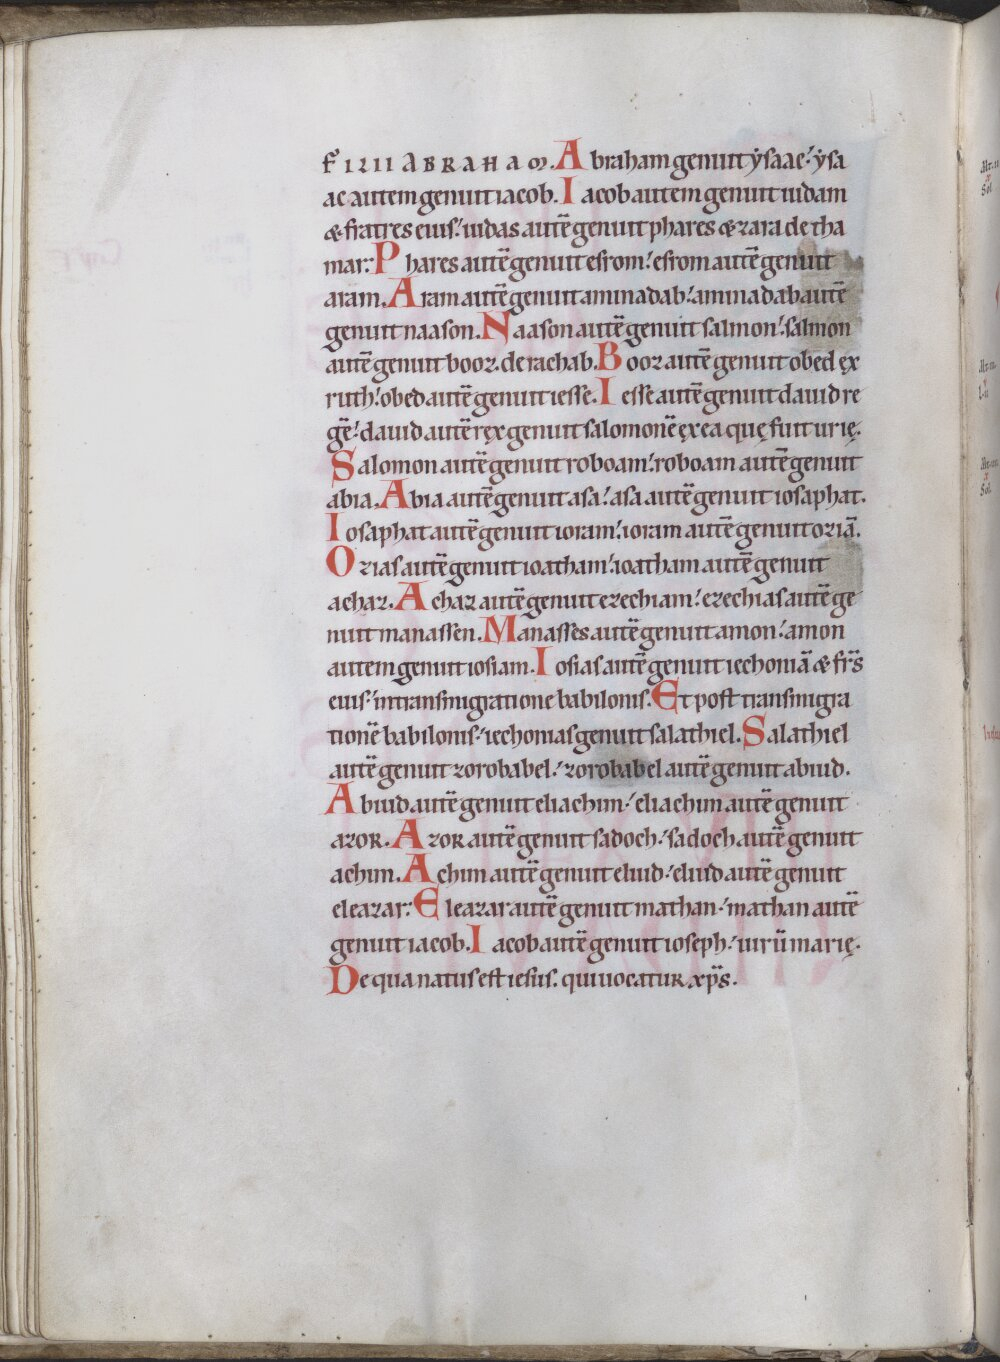 FILII ABRAHAM. Abraham genuit ẏsaac: ẏsa
ac autem genuit iacob. Iacob autem genuit iudam
& fratres eius: iudas autē genuit phares & zara de tha
mar: Phares autē genuit esrom: esrom autē genuit
aram. Aram autē genuit aminadab: aminadab autē
genuit naason. Naason autē genuit salmon: salmon
autē genuit booz. de rachab. Booz autē genuit obed ex
ruth: obed autē genuit iesse. Iesse autē genuit dauid re
gē: dauid autē rex genuit salomonē ex ea quę fuit urię.
Salomon autē genuit roboam: roboam autē genuit
abia. Abia autē genuit asa: asa autē genuit iosaphat.
Iosaphat autē genuit ioram: ioram autē genuit oziā.
Ozias autē genuit ioatham: ioatham autē genuit
achaz. Achaz autē genuit ezechiam: ezechias autē ge
nuit manassen. Manasses autē genuit amon: amon
autem genuit iosiam. Iosias autē genuit iechoniā & fr̄s
eius: in transmigratione babilonis. Et post transmigra
tionē babilonis: iechonias genuit salathiel. Salathiel
autē genuit zorobabel: zorobabel autē genuit abiud.
Abiud autē genuit eliachim: eliachim autē genuit
azor. Azor autē genuit sadoch: sadoch autē genuit
achim. Achim autē genuit eliud: eliud autē genuit
eleazar: Eleazar autē genuit mathan: mathan autē
genuit iacob. Iacob autē genuit ioseph: uirū marię.
De qua natus est iesus. qui uocatur xp̄s.